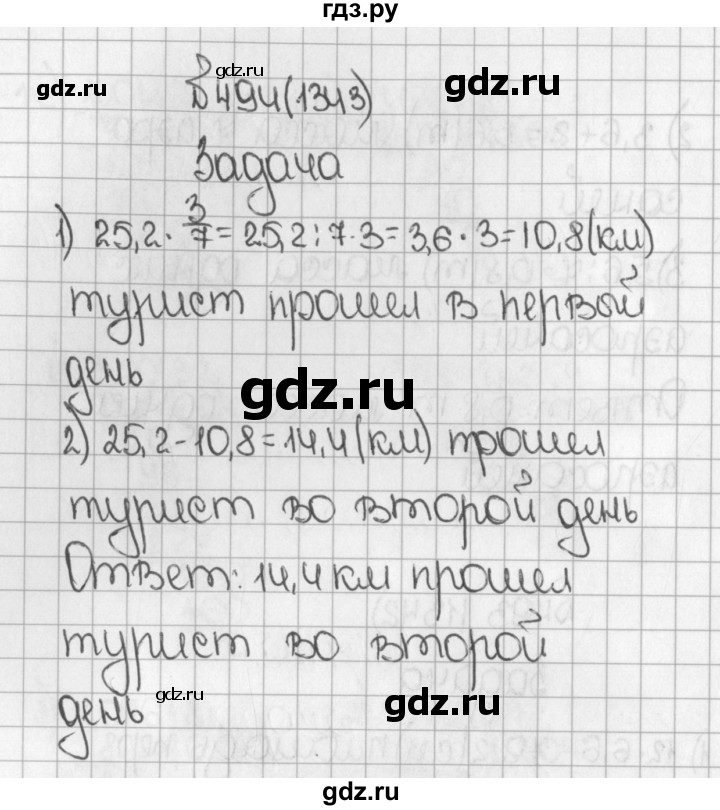 гдз.ру
gdz.ru gdz.ru gdz.ru
№494(1343)
Задача
1) 25,2·3/7=25,2:7·3=3,6·3=10,8(км)
турист прошел в первый
день
gdz.ru
2) 25,2-10,8=14,4(км) прошел
турист во второй день
Ответ: 14,4км прошел
турист во второй
день
gdz.ru gdz.ru
gdz.ru